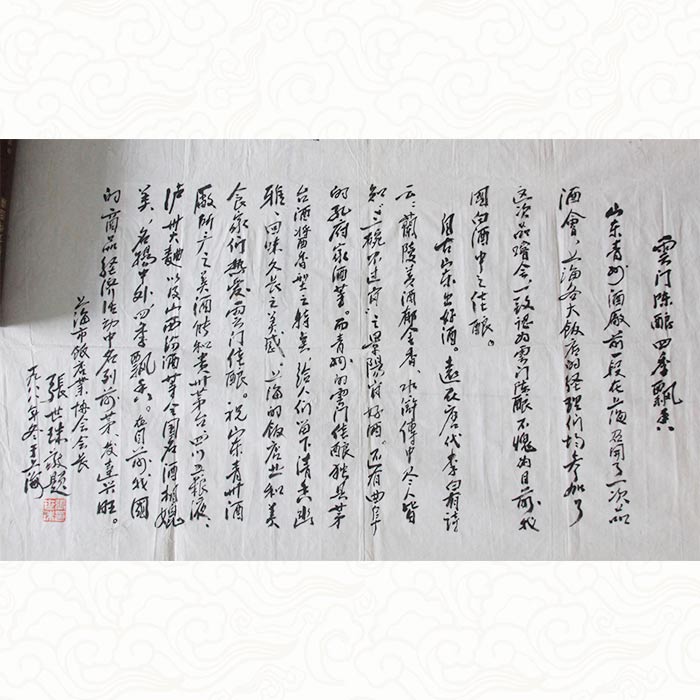 雲门陈酿 四季飘香
山东青州酒厰前一段在上海召開了一次品
酒會，上海各大饭店的经理们均参加了
这次品嚐会，一致认为雲门陈酿不愧为目前我
國白酒中之佳酿。
自古山东出好酒。遠在唐代李白有詩
云：蘭陵美酒郁金香，水浒傳中尽人皆
知"三碗不过崗"之景陽崗好酒。还有曲阜
的孔府家酒等。而青州的雲门佳酿独具茅
台酒酱香型之特色，给人们留下清香幽
雅、回味久长之美感，上海的饭店业和美
食家们热爱雲门佳酿。祝山东青州酒
厰所产之美酒能和贵州茅台、四川五粮液、
泸州大麯以及山西汾酒等全国名酒相媲
美，名揚中外四季飘香。在目前我國
的商品经济活动中名列前茅、发达兴旺。
上海市饭店業协会会长
張世珠 敬题
一九八八年冬于上海